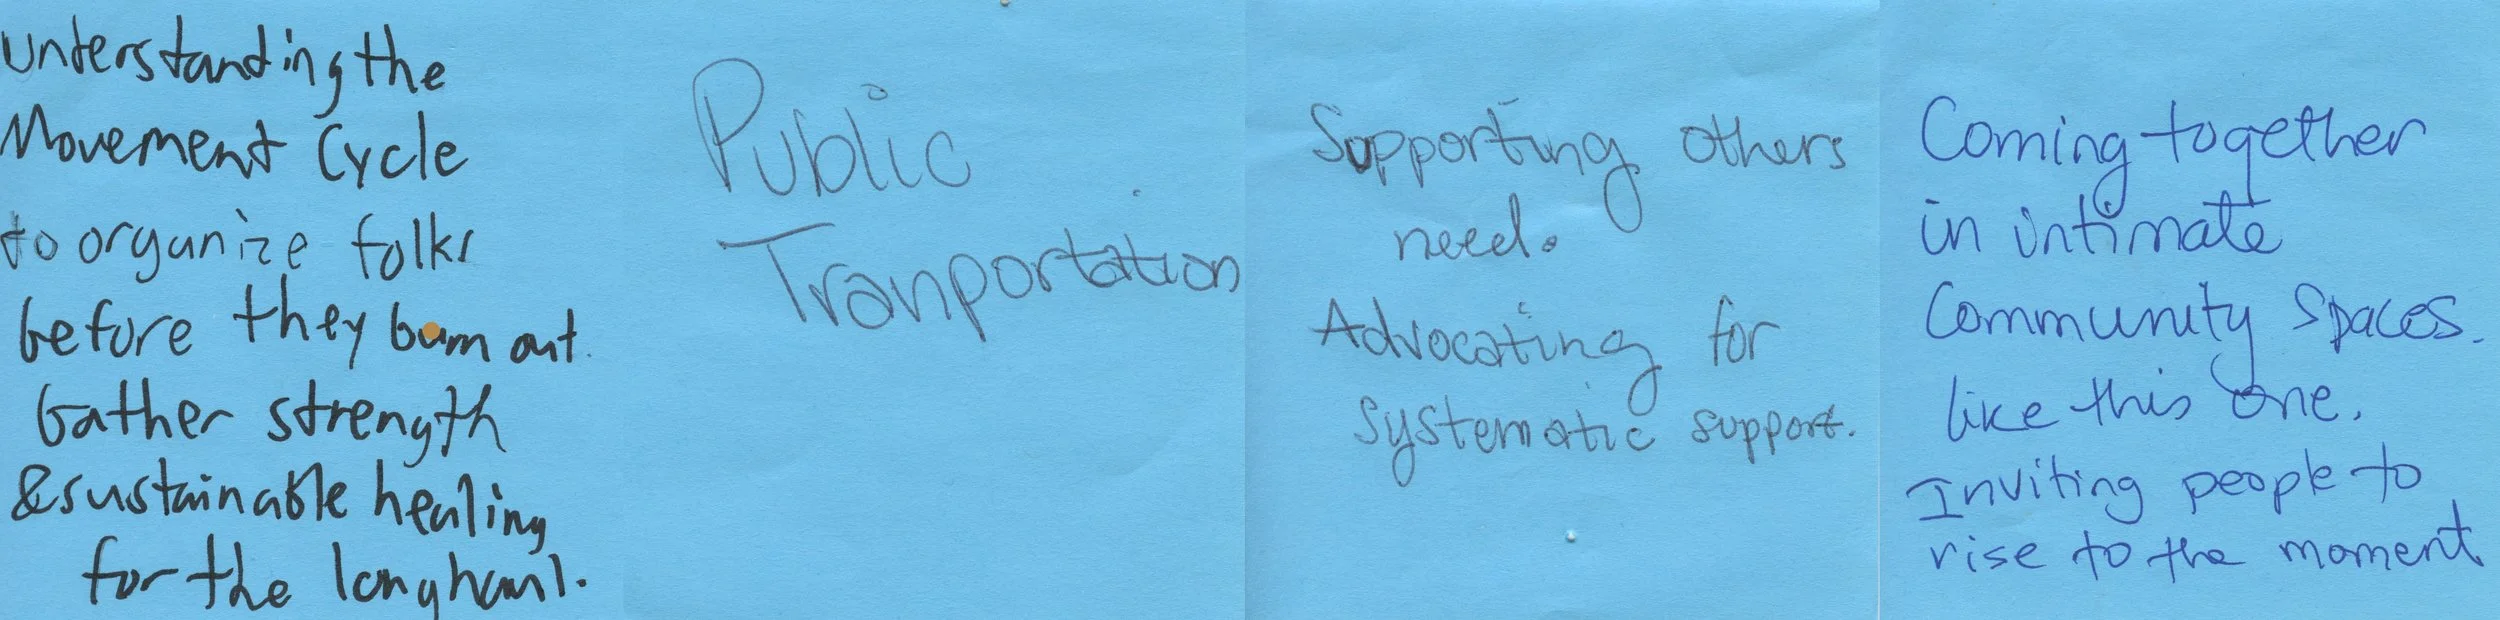 Understanding the
Movement Cycle
to organize folks
before they burn out.
Gather strength
& sustainable healing
for the longhaul.
Public
Tranportation
Supporting others
need.
Advocating for
systematic support.
Coming together
in intimate
Community spaces.
like this one.
Inviting people to
rise to the moment